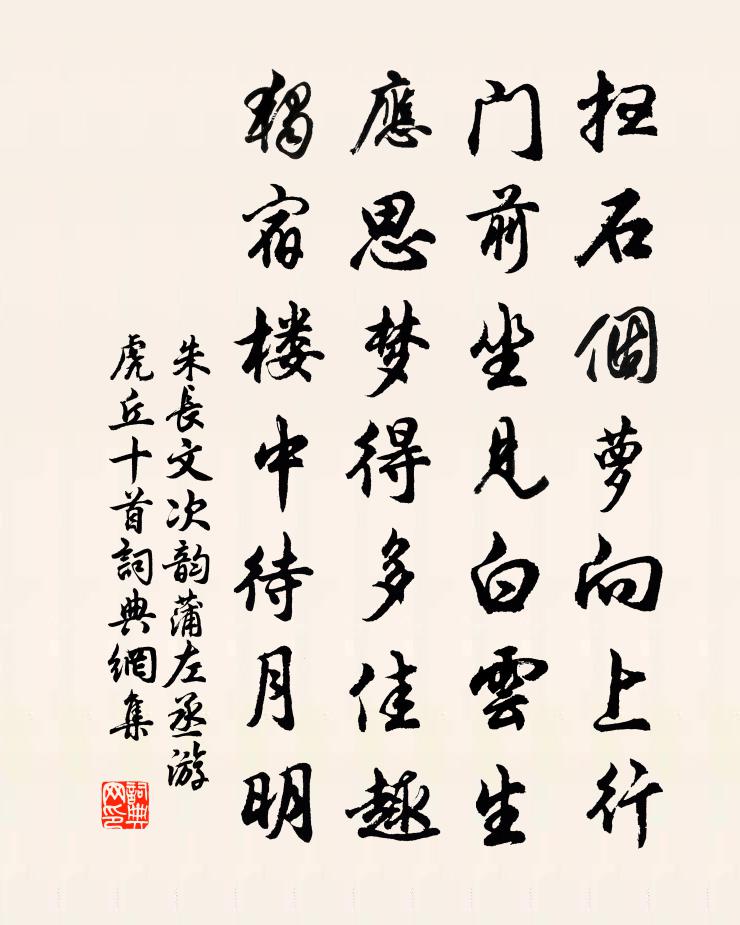 石個夢向上行
门前坐见白雲生
應思梦得多佳趣
獨宿楼中待月明
朱長文次韵蒲左丞游
虎丘十首詞典網集
詞典网印